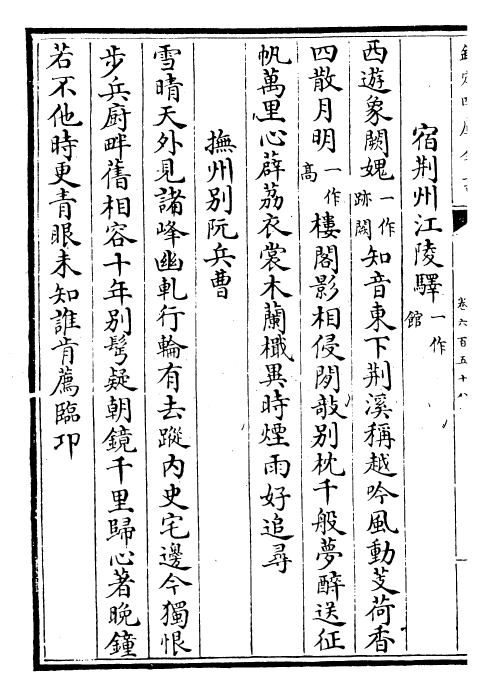 卷六百五十八
宿荆州江陵驛一作館
西遊象闕媿一作跡闕知音東下荆溪稱越吟風動芰荷香
四散月明一作高樓閣影相侵閒敧别枕千般夢醉送征
帆萬里心薜荔衣裳木蘭檝異時煙雨好追尋
撫州别阮兵曹
雪晴天外見諸峰幽軋行輪有去蹤内史宅邊今獨恨
步兵廚畔舊相容十年别鬂疑朝鏡千里歸心著晚鐘
若不他時更青眼未知誰肯薦臨卭